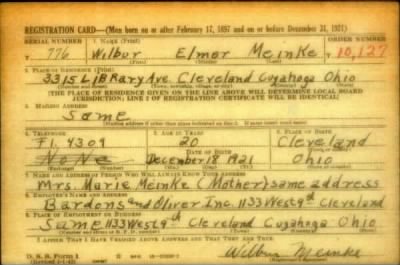 REGISTRATION CARD—(Men born on or after February 17, 1897 and on or before December 31, 1921)
SERIAL NUMBER 1. NAME (Print) ORDER NUMBER
776 Wilbur Elmer Meinke 10,127
(First) (Middle) (Last)
2. PLACE OF RESIDENCE (Print)
3315 LIBRARY Ave Cleveland Cuyahoga Ohio
(Number and street) (Town, township, village, or city) (County) (State)
[THE PLACE OF RESIDENCE GIVEN ON THE LINE ABOVE WILL DETERMINE LOCAL BOARD
JURISDICTION; LINE 2 OF REGISTRATION CERTIFICATE WILL BE IDENTICAL]
3. MAILING ADDRESS
Same
4. TELEPHONE 5. AGE IN YEARS 6. PLACE OF BIRTH
FL 4309 20 Cleveland
DATE OF BIRTH
None December 18 1921 Ohio
7. NAME AND ADDRESS OF PERSON WHO WILL ALWAYS KNOW YOUR ADDRESS
Mrs Marie Meinke (Mother) same address
8. EMPLOYER'S NAME AND ADDRESS
Bardons and Oliver Inc. 1133 West 9th Cleveland
9. PLACE OF EMPLOYMENT OR BUSINESS
Same 1133 West 9th Cleveland Cuyahoga Ohio
I AFFIRM THAT I HAVE VERIFIED ABOVE ANSWERS AND THAT THEY ARE TRUE.
D. S. S. Form 1 Wilbur Meinke